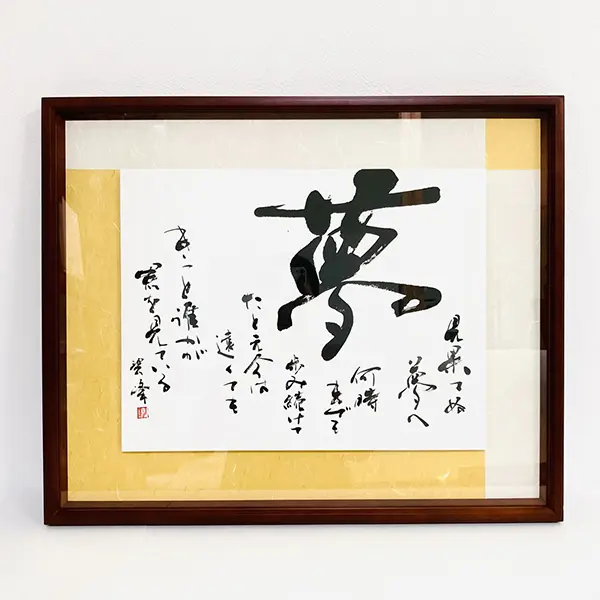 夢
見果てぬ
夢へ
何時
までも
歩み続けて
たとえ今は
遠くても
きっと誰かが
窓を見ている